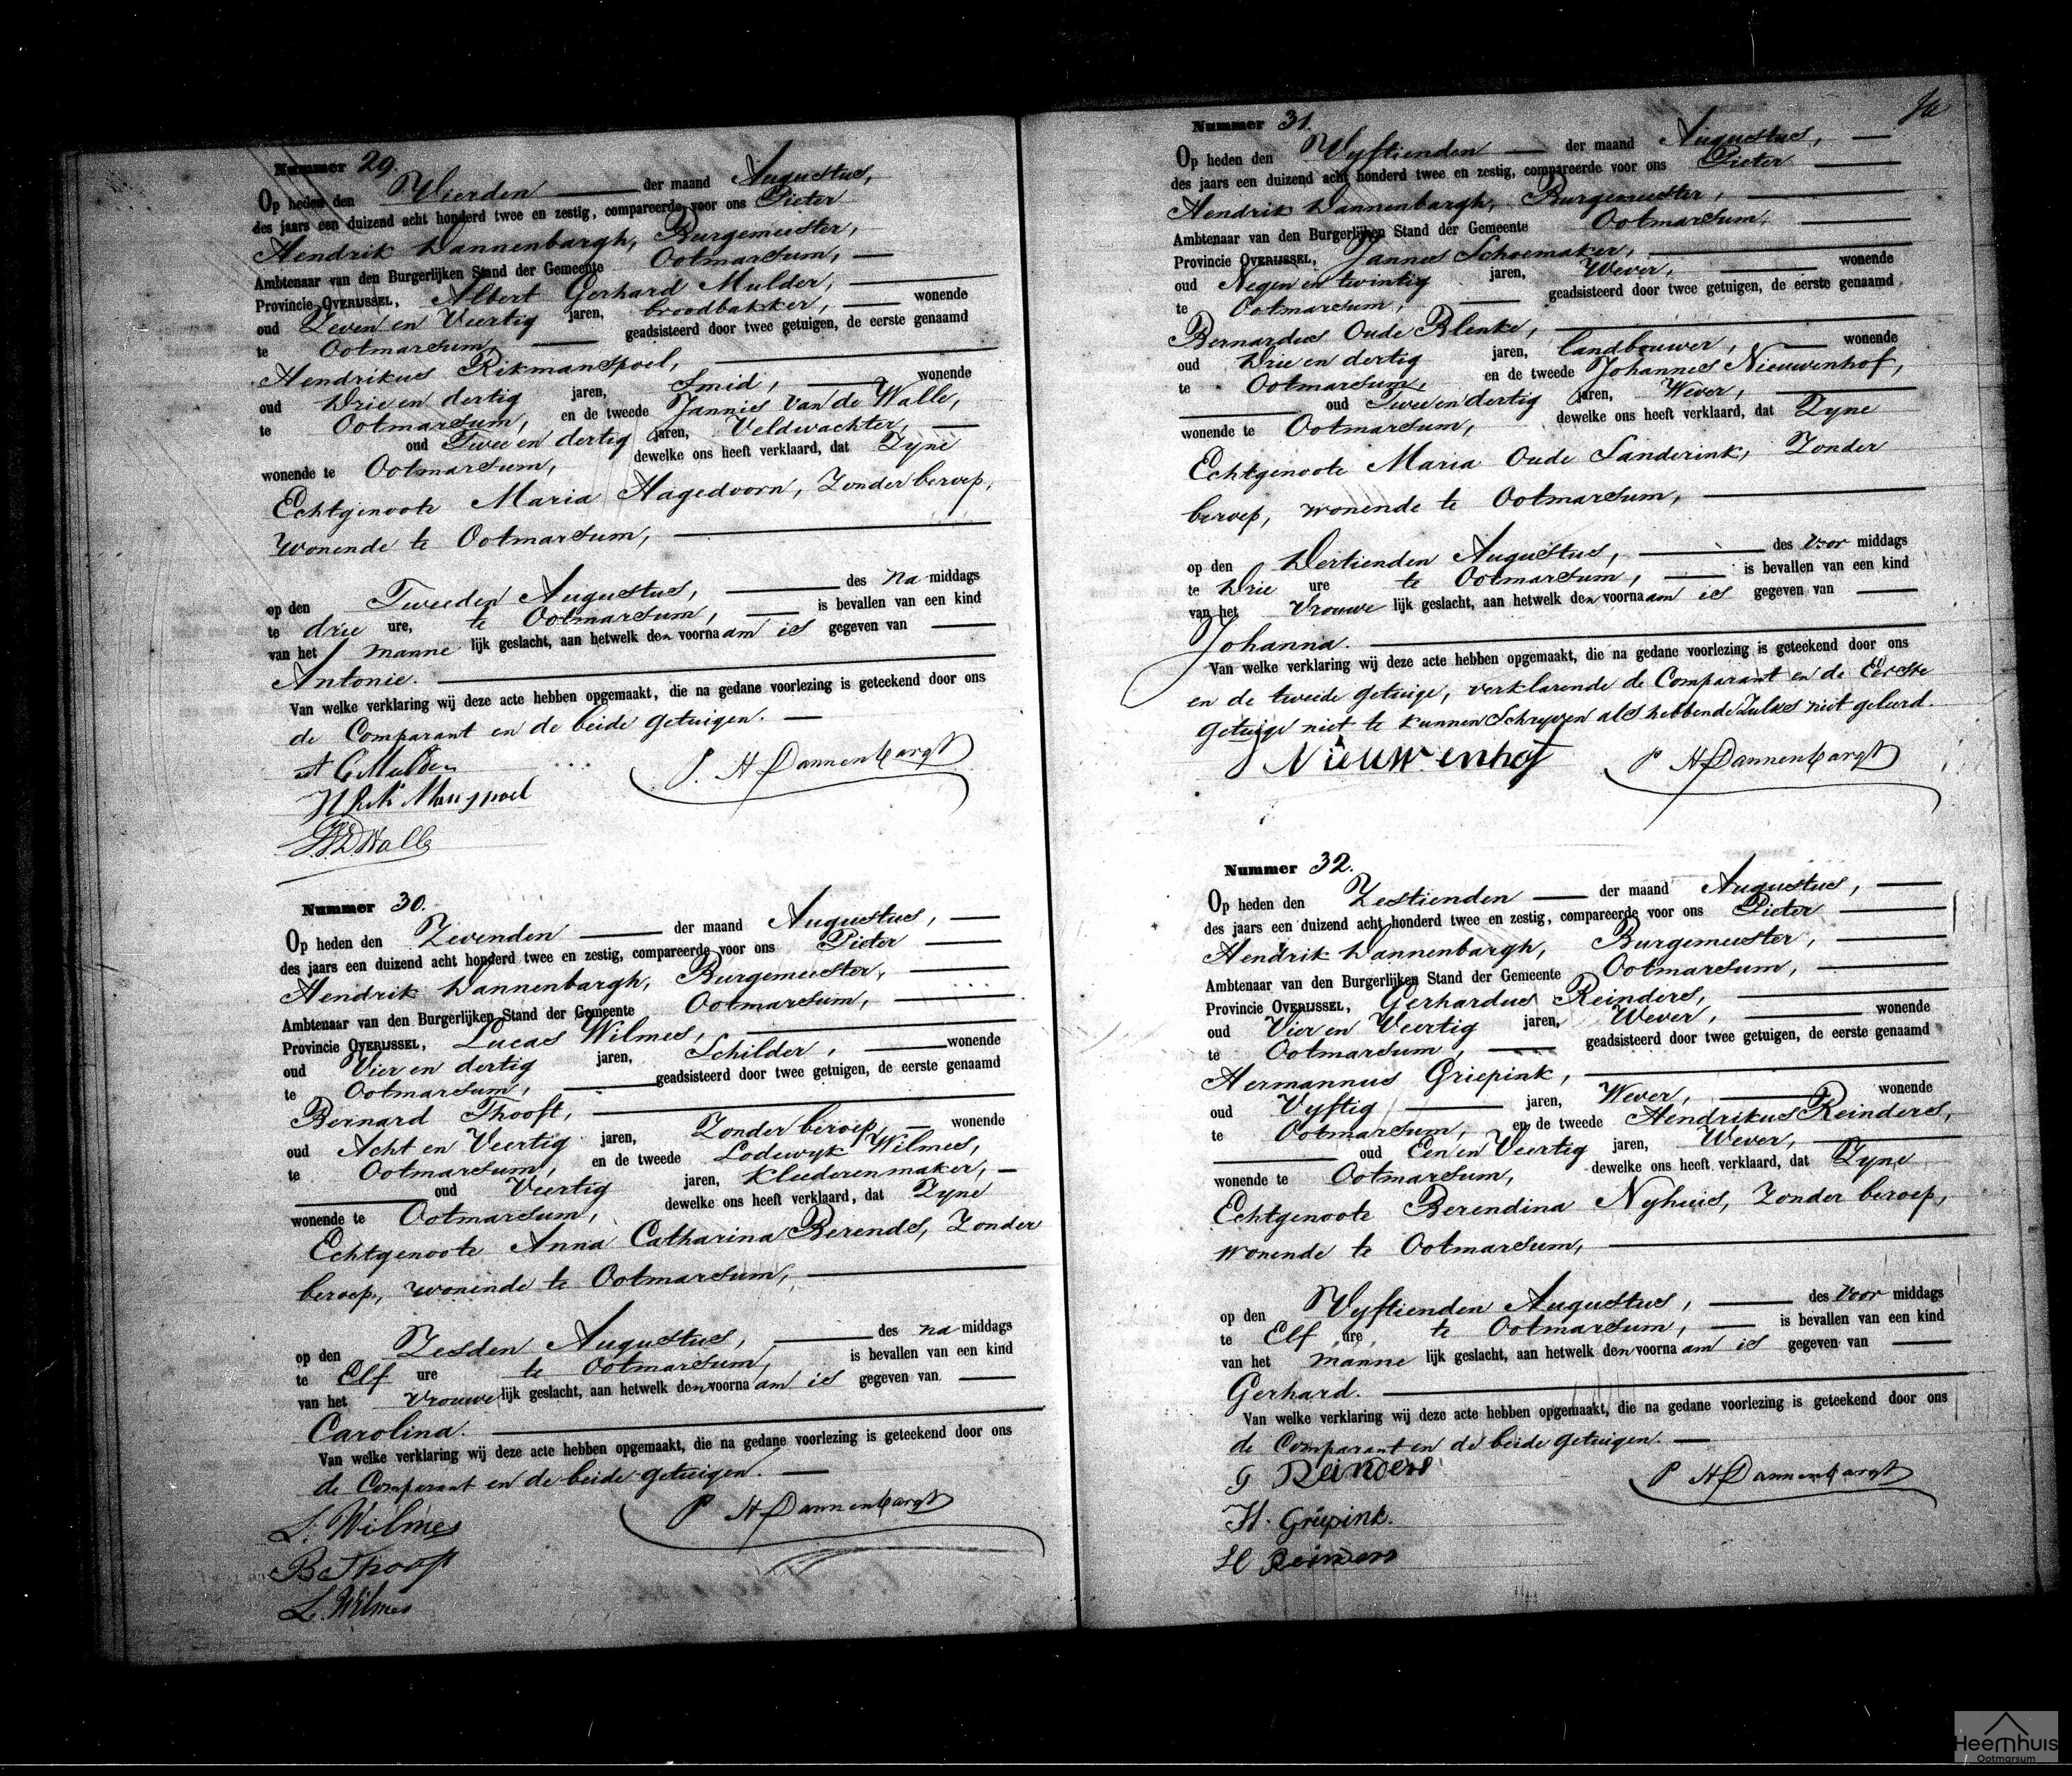 Nummer 29.
Op heden den Vierden der maand Augustus,
des jaars een duizend acht honderd twee en zestig, compareerde voor ons Pieter
Hendrik Dannenbargh, Burgemeister,
Ambtenaar van den Burgerlijken Stand der Gemeente Ootmarsum,
Provincie OVERIJSSEL, Albert Gerhard Mulder,
oud Zeven en Veertig jaren, broodbakker, wonende
te Ootmarsum, geadsisteerd door twee getuigen, de eerste genaamd
Hendrikus Rikmanspoel,
oud Drie en dertig jaren, Smid, wonende
te Ootmarsum, en de tweede Jannis van de Walle,
oud Twee en dertig jaren, Veldwachter,
wonende te Ootmarsum, dewelke ons heeft verklaard, dat Zyne
Echtgenoote Maria Hagedoorn, Zonder beroep,
wonende te Ootmarsum,
op den Tweeden Augustus, des na middags
te drie ure, te Ootmarsum, is bevallen van een kind
van het manne lijk geslacht, aan hetwelk den voornaam is gegeven van
Antonie.
Van welke verklaring wij deze acte hebben opgemaakt, die na gedane voorlezing is geteekend door ons
de Comparant en de beide getuigen.
A G Mulder
P. H Dannenbargh
H Rikmanspoel
J.V.D.Walle
Nummer 30.
Op heden den Zevenden der maand Augustus,
des jaars een duizend acht honderd twee en zestig, compareerde voor ons Pieter
Hendrik Dannenbargh, Burgemeister,
Ambtenaar van den Burgerlijken Stand der Gemeente Ootmarsum,
Provincie OVERIJSSEL, Lucas Wilmes,
oud Vier en dertig jaren, Schilder, wonende
te Ootmarsum, geadsisteerd door twee getuigen, de eerste genaamd
Bernard Thooft,
oud Acht en Veertig jaren, Zonder beroep, wonende
te Ootmarsum, en de tweede Lodewyk Wilmes,
oud Veertig jaren, Kleederenmaker,
wonende te Ootmarsum, dewelke ons heeft verklaard, dat Zyne
Echtgenoote Anna Catharina Berends, Zonder
beroep, wonende te Ootmarsum,
op den Zesden Augustus, des na middags
te Elf ure te Ootmarsum, is bevallen van een kind
van het vrouwe lijk geslacht, aan hetwelk den voornaam is gegeven van
Carolina.
Van welke verklaring wij deze acte hebben opgemaakt, die na gedane voorlezing is geteekend door ons
de Comparant en de beide getuigen.
L. Wilmes
P H Dannenbargh
B Thooft
L. Wilmes
Nummer 31.
Op heden den Vyftienden der maand Augustus,
des jaars een duizend acht honderd twee en zestig, compareerde voor ons Pieter
Hendrik Dannenbargh, Burgemeister,
Ambtenaar van den Burgerlijken Stand der Gemeente Ootmarsum,
Provincie OVERIJSSEL, Jannes Schoemaker,
oud Negen en twintig jaren, Wever, wonende
te Ootmarsum, geadsisteerd door twee getuigen, de eerste genaamd
Bernardus Oude Blenke,
oud Drie en dertig jaren, landbouwer, wonende
te Ootmarsum, en de tweede Johannes Nieuwenhof,
oud Twee en dertig jaren, Wever,
wonende te Ootmarsum, dewelke ons heeft verklaard, dat Zyne
Echtgenoote Maria Oude Sanderink, Zonder
beroep, wonende te Ootmarsum,
op den Dertienden Augustus, des voor middags
te Drie ure te Ootmarsum, is bevallen van een kind
van het Vrouwe lijk geslacht, aan hetwelk den voornaam is gegeven van
Johanna.
Van welke verklaring wij deze acte hebben opgemaakt, die na gedane voorlezing is geteekend door ons
en de tweede getuige, verklarende de Comparant en de Eerste
getuige niet te kunnen Schryven als hebbende Zulks niet geleerd.
J Nieuwenhof
P H Dannenbargh
Nummer 32.
Op heden den Zestienden der maand Augustus,
des jaars een duizend acht honderd twee en zestig, compareerde voor ons Pieter
Hendrik Dannenbargh, Burgemeister,
Ambtenaar van den Burgerlijken Stand der Gemeente Ootmarsum,
Provincie OVERIJSSEL, Gerhardus Reinders,
oud Vier en Veertig jaren, Wever, wonende
te Ootmarsum, geadsisteerd door twee getuigen, de eerste genaamd
Hermannus Griepink,
oud Vyftig jaren, Wever, wonende
te Ootmarsum, en de tweede Hendrikus Reinders,
oud Een en Veertig jaren, Wever,
wonende te Ootmarsum, dewelke ons heeft verklaard, dat Zyne
Echtgenoote Berendina Nyhuis, Zonder beroep,
wonende te Ootmarsum,
op den Vyftienden Augustus, des voor middags
te Elf ure, te Ootmarsum, is bevallen van een kind
van het manne lijk geslacht, aan hetwelk den voornaam is gegeven van
Gerhard.
Van welke verklaring wij deze acte hebben opgemaakt, die na gedane voorlezing is geteekend door ons
de Comparant en de beide getuigen.
G Reinders
P H Dannenbargh
H. Griepink.
H Reinders
Heemhuis
Ootmarsum